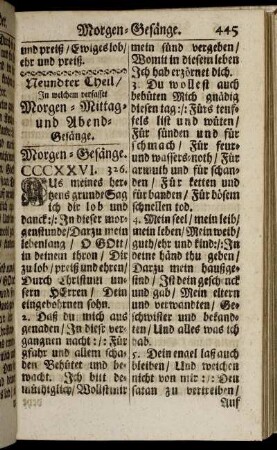 Morgen-Gesänge. 445
und preiß/ Ewiges lob/
ehr und preiß.
Neundter Theil/
In welchem verfasset
Morgen- Mittag-
und Abend-
Gesänge.
Morgen-Gesänge.
CCCXXVI. 326.
AUs meines her-
tzens grunde Sag
ich dir lob und
danck:/: In dieser mor-
genstunde/ Darzu mein
lebenlang/ O GOtt/
in deinem thron/ Dir
zu lob/ preiß und ehren/
Durch Christum un-
sern HErren/ Dein
eingebohrnen sohn.
2. Daß du mich aus
genaden/ In dieser ver-
gangnen nacht:/: Für
gfahr und allem scha-
den Behütet und be-
wacht. Ich bitt de-
müthiglich/ Wollst mir
mein sünd vergeben/
Womit in diesem leben
Ich hab erzörnet dich.
3. Du wollest auch
behüten Mich gnädig
diesen tag:/: Fürs teuf-
fels list und wüten/
Für sünden und für
schmach/ Für feur-
und wassersnoth/ Für
armuth und für schan-
den/ Für ketten und
für banden/ Für bösem
schnellen tod.
4. Mein seel/ mein leib/
mein leben/ Mein weib/
guth/ ehr und kind:/: In
deine händ thu geben/
Darzu mein haußge-
sind/ Ist dein geschenck
und gab/ Mein eltern
und verwandten/ Ge-
schwister und bekand-
ten/ Und alles was ich
hab.
5. Dein engel laß auch
bleiben/ Und weichen
nicht von mir:/: Den
satan zu vertreiben/
Auf